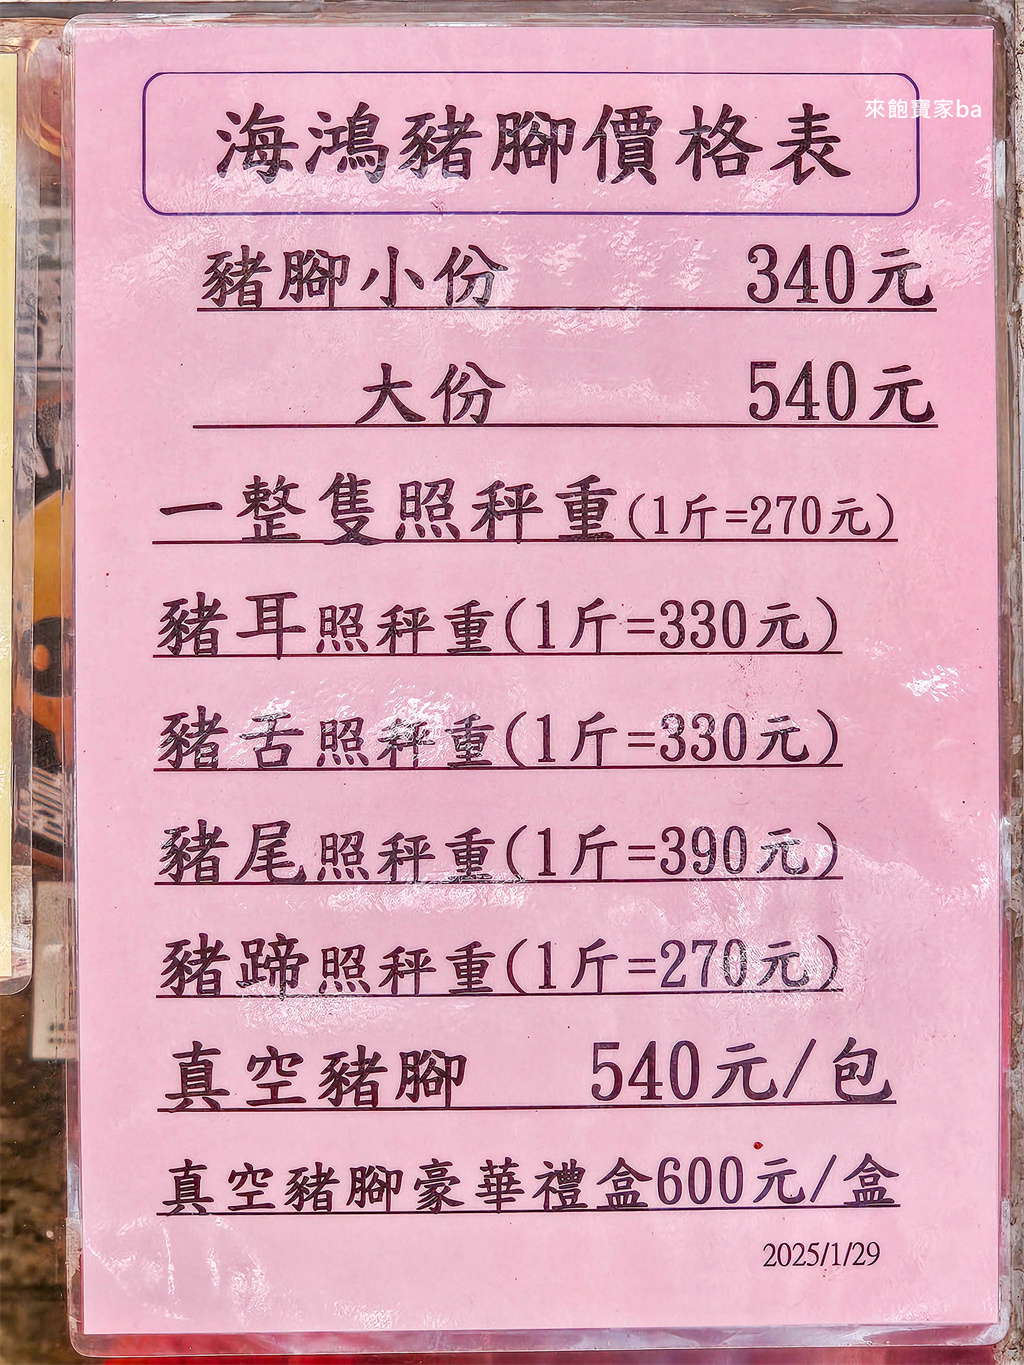 海鴻豬腳價格表
來飽寶家ba
豬腳小份 340元
大份 540元
一整隻照秤重(1斤=270元)
豬耳照秤重(1斤=330元)
豬舌照秤重(1斤=330元)
豬尾照秤重(1斤=390元)
豬蹄照秤重(1斤=270元)
真空豬腳 540元/包
真空豬腳豪華禮盒600元/盒
2025/1/29